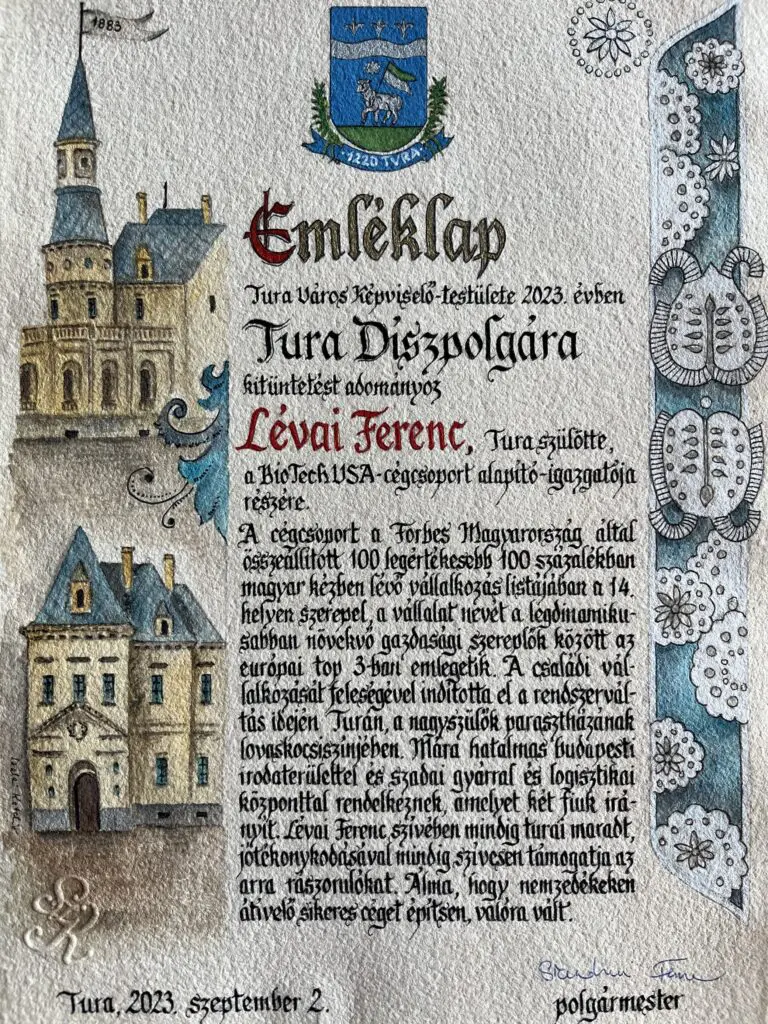 1883
1220 TURA
Emléklap
Tura Város Képviselő-testülete 2023. évben
Tura Díszpolgára
kitüntetést adományoz
Lévai Ferenc, Tura szülötte,
a BioTech USA-cégcsoport alapító-igazgatója
részére.
A cégcsoport a Forbes Magyarország által
összeállított 100 legértékesebb 100 százalékban
magyar kézben lévő vállalkozás listájában a 14.
helyen szerepel, a vállalat nevét a legdinamiku-
sabban növekvő gazdasági szereplők között az
európai top 3-ban emlegetik. A családi vál-
lalkozását feleségével indította el a rendszervál-
tás idején Turán, a nagyszülők parasztházának
lovaskocsiszínjében. Mára hatalmas budapesti
irodaterülettel és szadai gyárral és logisztikai
központtal rendelkeznek, amelyet két fiuk irá-
nyít. Lévai Ferenc szívében mindig turai maradt,
jótékonykodásával mindig szívesen támogatja az
arra rászorulókat. Álma, hogy nemzedékeken
átívelő sikeres céget építsen, valóra vált.
Tura, 2023. szeptember 2.
polgármester